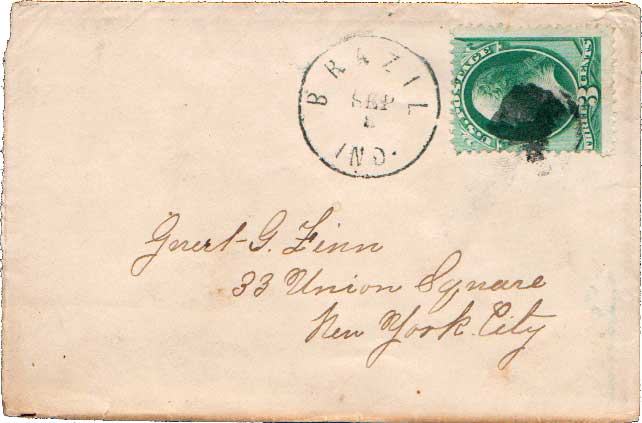 BRAZIL
SEP
IND.
U.S. POSTAGE
THREE 3 CENTS
G. Finn
33 Union Square
New York City